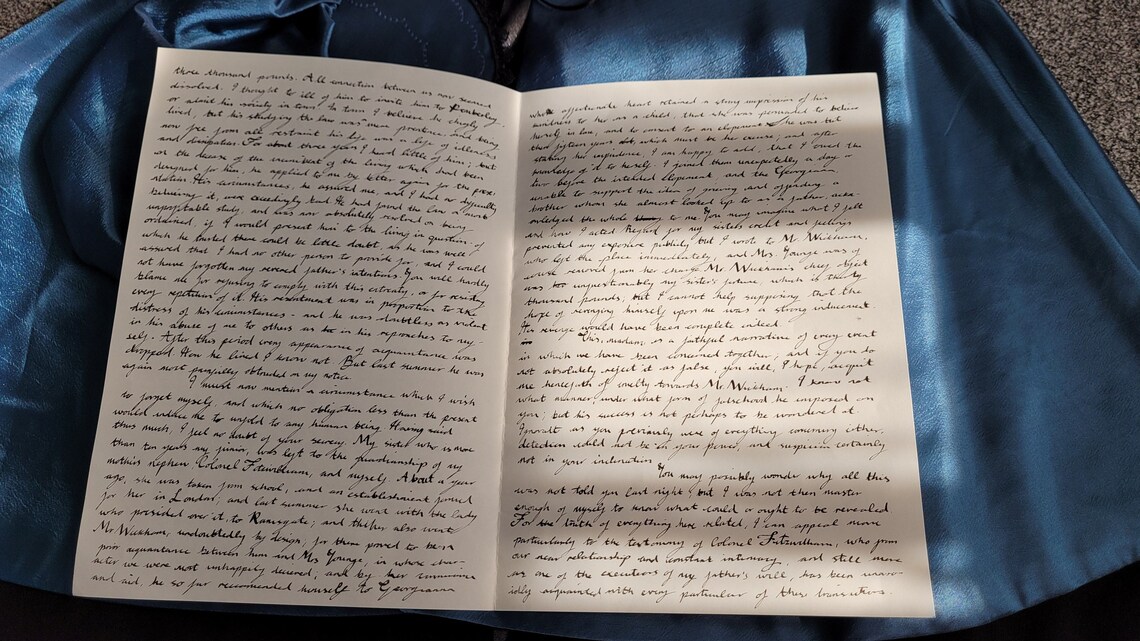 three thousand pounds. All connection between us now seemed
dissolved. I thought to ill of him to invite him to Pemberley,
or admit his society in town. In town I believe he chiefly
lived, but his studying the law was mere pretence, and being
now free from all restraint his life was a life of idleness
and dissipation. For about three years I heard little of him; but
on the decease of the incumbent of the living which had been
designed for him, he applied to me by letter again for the prese-
ntation. His circumstances, he assured me, and I had no difficulty
believing it, were exceedingly bad. He had found the law a most
unprofitable study, and was now absolutely resolved on being
ordained, if I would present him to the living in question - of
which he trusted there could be little doubt, as he was well
assured that I had no other person to provide for, and I could
not have forgotten my revered father's intentions. You will hardly
blame me for refusing to comply with this entreaty, or for resisting
every repetition of it. His resentment was in proportion to the
distress of his circumstances - and he was doubtless as violent
in his abuse of me to others as in his reproaches to my-
self. After this period every appearance of acquaintance was
dropped. How he lived I know not. But last summer he was
again most painfully obtruded on my notice.
I must now mention a circumstance which I wish
to forget myself, and which no obligation less than the present
would induce me to unfold to any human being. Having said
thus much, I feel no doubt of your secrecy. My sister, who is more
than ten years my junior, was left to the guardianship of my
mothers nephew Colonel Fitzwilliam, and myself. About a year
ago, she was taken from school, and an establishment formed
for her in London, and last summer she went with the lady
who presided over it, to Ramsgate; and thither also went
Mr Wickham, undoubtedly by design, for there proved to be a
prior aquantance between him and Mrs Younge, in whose char-
acter we were most unhappily deceived, and by her connivance
and aid, he so far recommended himself to Georgiana
whose affectionate heart retained a strong impression of his
kindness to her as a child, that she was persuaded to believe
herself in love, and to consent to an elopement. She was but
then fifteen years old, which must be her excuse; and after
stating her imprudence, I am happy to add, that I owed the
knowledge of it to herself. I joined them unexpectedly a day or
two before the intended elopement, and the Georgiana
unable to support the idea of grieving and offending a
brother whom she almost looked up to as a father, ackn-
owledged the whole to me. You may imagine what I felt
and how I acted. Regard for my sisters credit and feelings
prevented any exposure publicly but I wrote to Mr. Wickham,
who left the place immediately, and Mrs. Younge was of
course removed from her charge. Mr Wickham's chief object
was too unquestionably my sister's fortune, which is thirty
thousand pounds; but I cannot help supposing that the
hope of revenging himself upon me was a strong inducement.
His revenge would have been complete indeed.
This, madam, is a faithful narrative of every event
in which we have been concerned together; and if you do
not absolutely reject it as false, you will, I hope, acquit
me henceforth of cruelty towards Mr. Wickham. I know not
what manner, under what form of falsehood he imposed on
you; but his success is not perhaps to be wondered at.
Ignorant as you previously were of everything concerning either,
detection could not be in your power, and suspicion certainly
not in your inclination.
You may possibly wonder why all this
was not told you last night; but I was not then master
enough of myself to know what could or ought to be revealed
For the truth of everything here related, I can appeal more
particularly to the testimony of Colonel Fitzwilliam, who from
our near relationship and constant intimacy, and still more
as one of the executors of my father's will, has been unavo-
idly acquainted with every particular of these transactions.